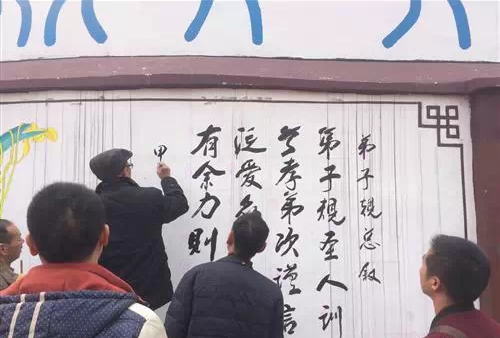 弟子規总叙
弟子規圣人训
首孝弟次谨信
泛爱
有余力則